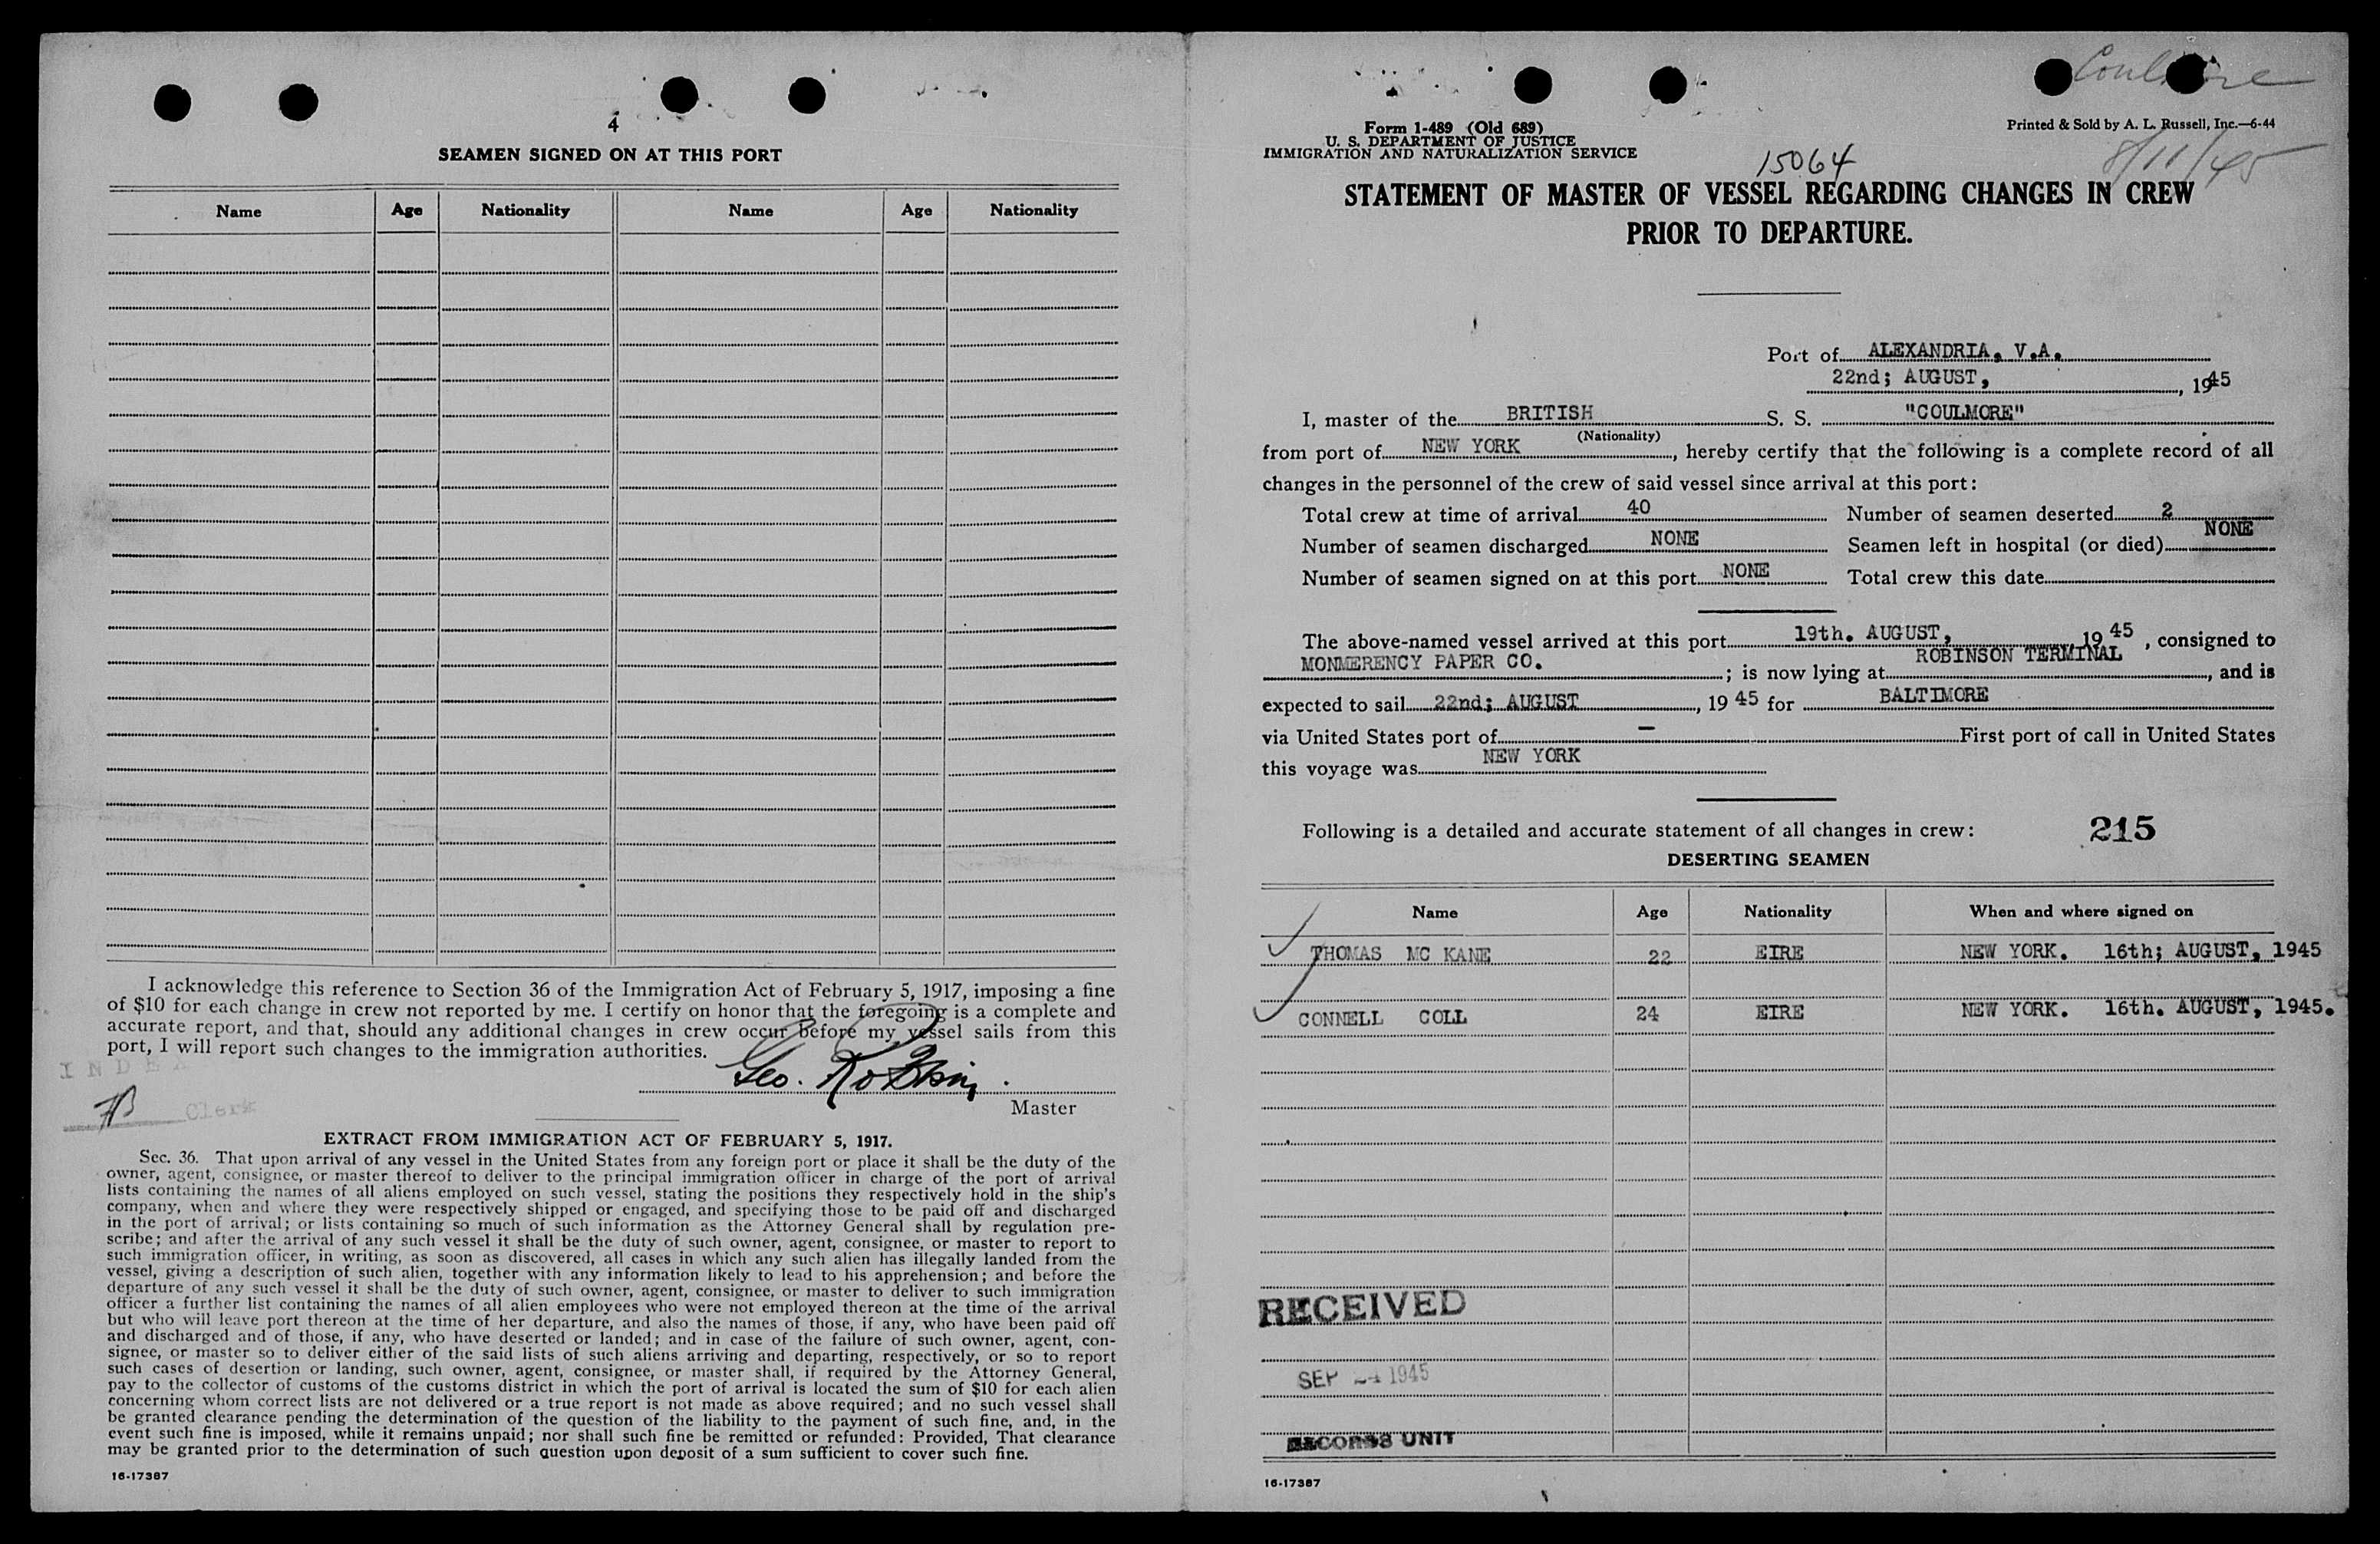 4
SEAMEN SIGNED ON AT THIS PORT
Name Age Nationality Name Age Nationality
I acknowledge this reference to Section 36 of the Immigration Act of February 5, 1917, imposing a fine
of $10 for each change in crew not reported by me. I certify on honor that the foregoing is a complete and
accurate report, and that, should any additional changes in crew occur before my vessel sails from this
port, I will report such changes to the immigration authorities.
Geo.
Clerk
Master
EXTRACT FROM IMMIGRATION ACT OF FEBRUARY 5, 1917.
Sec. 36. That upon arrival of any vessel in the United States from any foreign port or place it shall be the duty of the
owner, agent, consignee, or master thereof to deliver to the principal immigration officer in charge of the port of arrival
lists containing the names of all aliens employed on such vessel, stating the positions they respectively hold in the ship's
company, when and where they were respectively shipped or engaged, and specifying those to be paid off and discharged
in the port of arrival; or lists containing so much of such information as the Attorney General shall by regulation pre-
scribe; and after the arrival of any such vessel it shall be the duty of such owner, agent, consignee, or master to report to
such immigration officer, in writing, as soon as discovered, all cases in which any such alien has illegally landed from the
vessel, giving a description of such alien, together with any information likely to lead to his apprehension; and before the
departure of any such vessel it shall be the duty of such owner, agent, consignee, or master to deliver to such immigration
officer a further list containing the names of all alien employees who were not employed thereon at the time of the arrival
but who will leave port thereon at the time of her departure, and also the names of those, if any, who have been paid off
and discharged and of those, if any, who have deserted or landed; and in case of the failure of such owner, agent, con-
signee, or master so to deliver either of the said lists of such aliens arriving and departing, respectively, or so to report
such cases of desertion or landing, such owner, agent, consignee, or master shall, if required by the Attorney General,
pay to the collector of customs of the customs district in which the port of arrival is located the sum of $10 for each alien
concerning whom correct lists are not delivered or a true report is not made as above required; and no such vessel shall
be granted clearance pending the determination of the question of the liability to the payment of such fine, and, in the
event such fine is imposed, while it remains unpaid; nor shall such fine be remitted or refunded: Provided, That clearance
may be granted prior to the determination of such question upon deposit of a sum sufficient to cover such fine.
16-17387
Coulmore
Form I-489 (Old 689)
U. S. DEPARTMENT OF JUSTICE
IMMIGRATION AND NATURALIZATION SERVICE
Printed & Sold by A. L. Russell, Inc.—6-44
15064
8/11/45
STATEMENT OF MASTER OF VESSEL REGARDING CHANGES IN CREW
PRIOR TO DEPARTURE.
Port of ALEXANDRIA, V.A.
22nd; AUGUST, , 1945
I, master of the BRITISH S. S. "COULMORE"
(Nationality)
from port of NEW YORK , hereby certify that the following is a complete record of all
changes in the personnel of the crew of said vessel since arrival at this port:
Total crew at time of arrival 40 Number of seamen deserted 2
Number of seamen discharged NONE Seamen left in hospital (or died) NONE
Number of seamen signed on at this port NONE Total crew this date
The above-named vessel arrived at this port 19th. AUGUST, 19 45 , consigned to
MONMERENCY PAPER CO. ; is now lying at ROBINSON TERMINAL , and is
expected to sail 22nd; AUGUST , 19 45 for BALTIMORE
via United States port of — First port of call in United States
this voyage was NEW YORK
Following is a detailed and accurate statement of all changes in crew: 215
DESERTING SEAMEN
Name Age Nationality When and where signed on
THOMAS MC KANE 22 EIRE NEW YORK. 16th; AUGUST, 1945
CONNELL COLL 24 EIRE NEW YORK. 16th. AUGUST, 1945.
RECEIVED
SEP 24 1945
RECORDS UNIT
16-17387